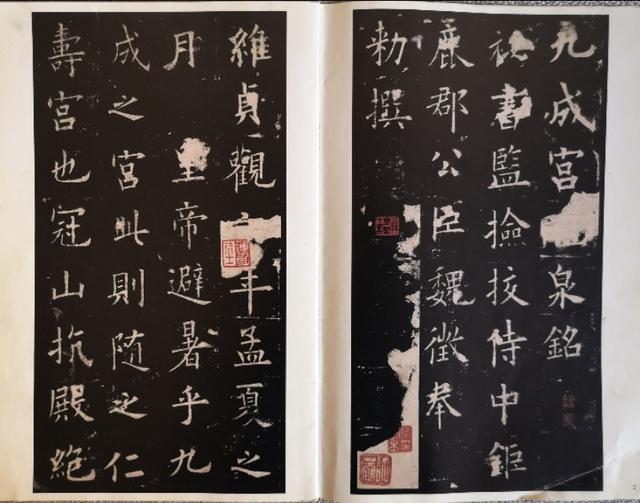 九成宮泉銘
祕書監撿挍侍中鉅
鹿郡公臣魏徵奉
勑撰
維貞觀年孟夏之
月皇帝避暑乎九
成之宮此則随之仁
壽宮也冠山抗殿絶